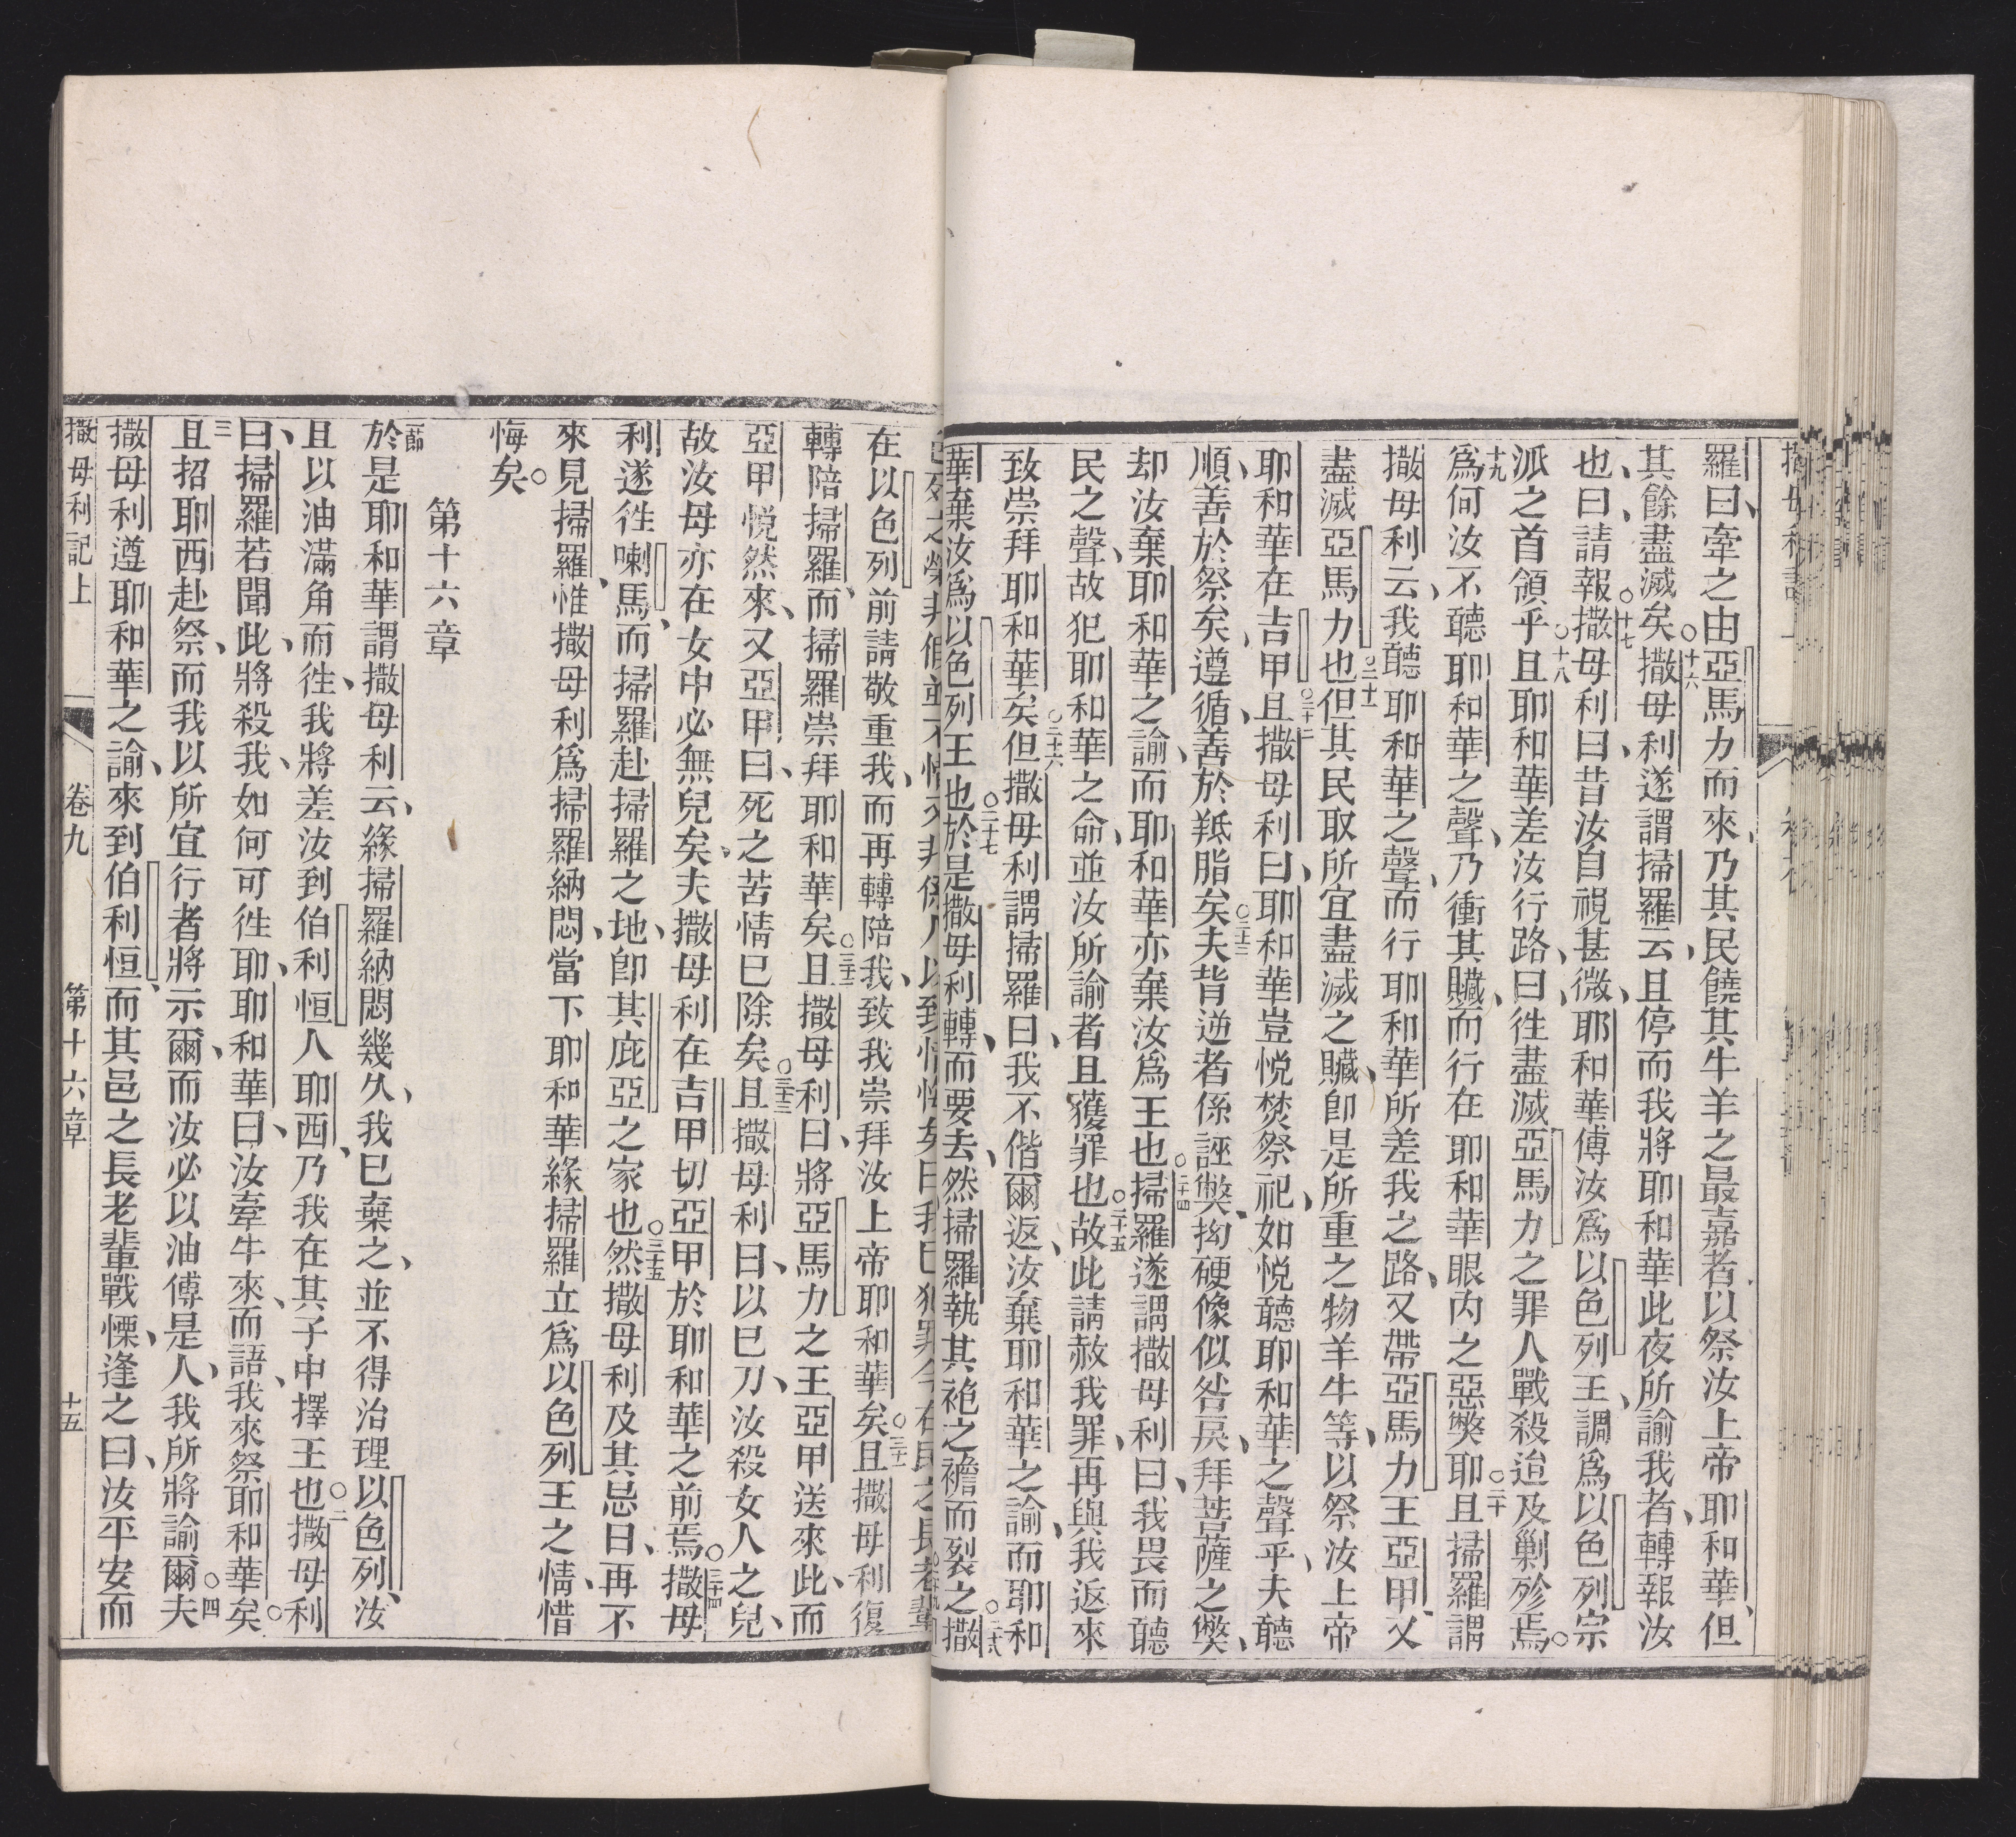 羅曰、牽之由亞馬力而來、乃其民饒其牛羊之最嘉者以祭汝上帝耶和華、但
其餘盡滅矣。十六撒母利遂謂掃羅云、且停而我將耶和華此夜所諭我者、轉報汝
也、曰、請報。十七撒母利曰、昔汝自視甚微、耶和華傅汝爲以色列王、調爲以色列宗
派之首領乎。十八且耶和華差汝行路、曰、徃盡滅亞馬力之罪人戰殺迨及剿殄焉。
十九爲何汝不聽耶和華之聲、乃衝其贓、而行在耶和華眼內之惡獘耶。二十且掃羅謂
撒母利云、我聽耶和華之聲、而行耶和華所差我之路、又帶亞馬力王亞甲、又
盡滅亞馬力也。二十一但其民取所宜盡滅之贓、卽是所重之物羊牛等、以祭汝上帝
耶和華在吉甲。二十二且撒母利曰、耶和華豈悅焚祭祀、如悅聽耶和華之聲乎、夫聽
順、善於祭矣、遵循、善於羝脂矣。二十三夫背逆者係誣獘、拗硬像似咎戾、拜菩薩之獘、
却汝棄耶和華之諭、而耶和華亦棄汝爲王也。二十四掃羅遂謂撒母利曰、我畏而聽
民之聲、故犯耶和華之命、並汝所諭者且獲罪也。二十五故此請赦我罪、再與我返來
致崇拜耶和華矣。二十六但撒母利謂掃羅曰、我不偕爾返、汝棄耶和華之諭、而耶和
華棄汝爲以色列王也。二十七於是撒母利轉、而要去、然掃羅執其袍之襜而裂之。二十八撒
在以色列前請敬重我、而再轉陪我、致我崇拜汝上帝耶和華矣。三十一且撒母利復
轉陪掃羅、而掃羅崇拜耶和華矣。三十二且撒母利曰、將亞馬力之王亞甲送來此、而
亞甲悅然來、又亞甲曰、死之苦情已除矣。三十三且撒母利曰、以巳刀、汝殺女人之兒、
故汝母亦在女中必無兒矣、夫撒母利在吉甲切亞甲於耶和華之前焉。三十四撒母
利遂徃喇馬、而掃羅赴掃羅之地、卽其庇亞之家也。三十五然撒母利及其忌日、再不
來見掃羅、惟撒母利爲掃羅納悶、當下耶和華緣掃羅立爲以色列王之情、惜
悔矣。
第十六章
一節於是耶和華謂撒母利云、緣掃羅納悶幾久、我已棄之、並不得治理以色列、汝
且以油滿角而徃、我將差汝到伯利恒人耶西、乃我在其子中擇王也。二撒母利
曰、掃羅若聞此、將殺我、如何可徃耶、耶和華曰、汝牽牛來、而語、我來祭耶和華矣。
三且招耶西赴祭、而我以所宜行者將示爾、而汝必以油傅是人、我所將諭爾。四夫
撒母利遵耶和華之諭、來到伯利恒、而其邑之長老輩戰慄、逢之曰、汝平安而
撒母利記上 卷九 第十六章 十五